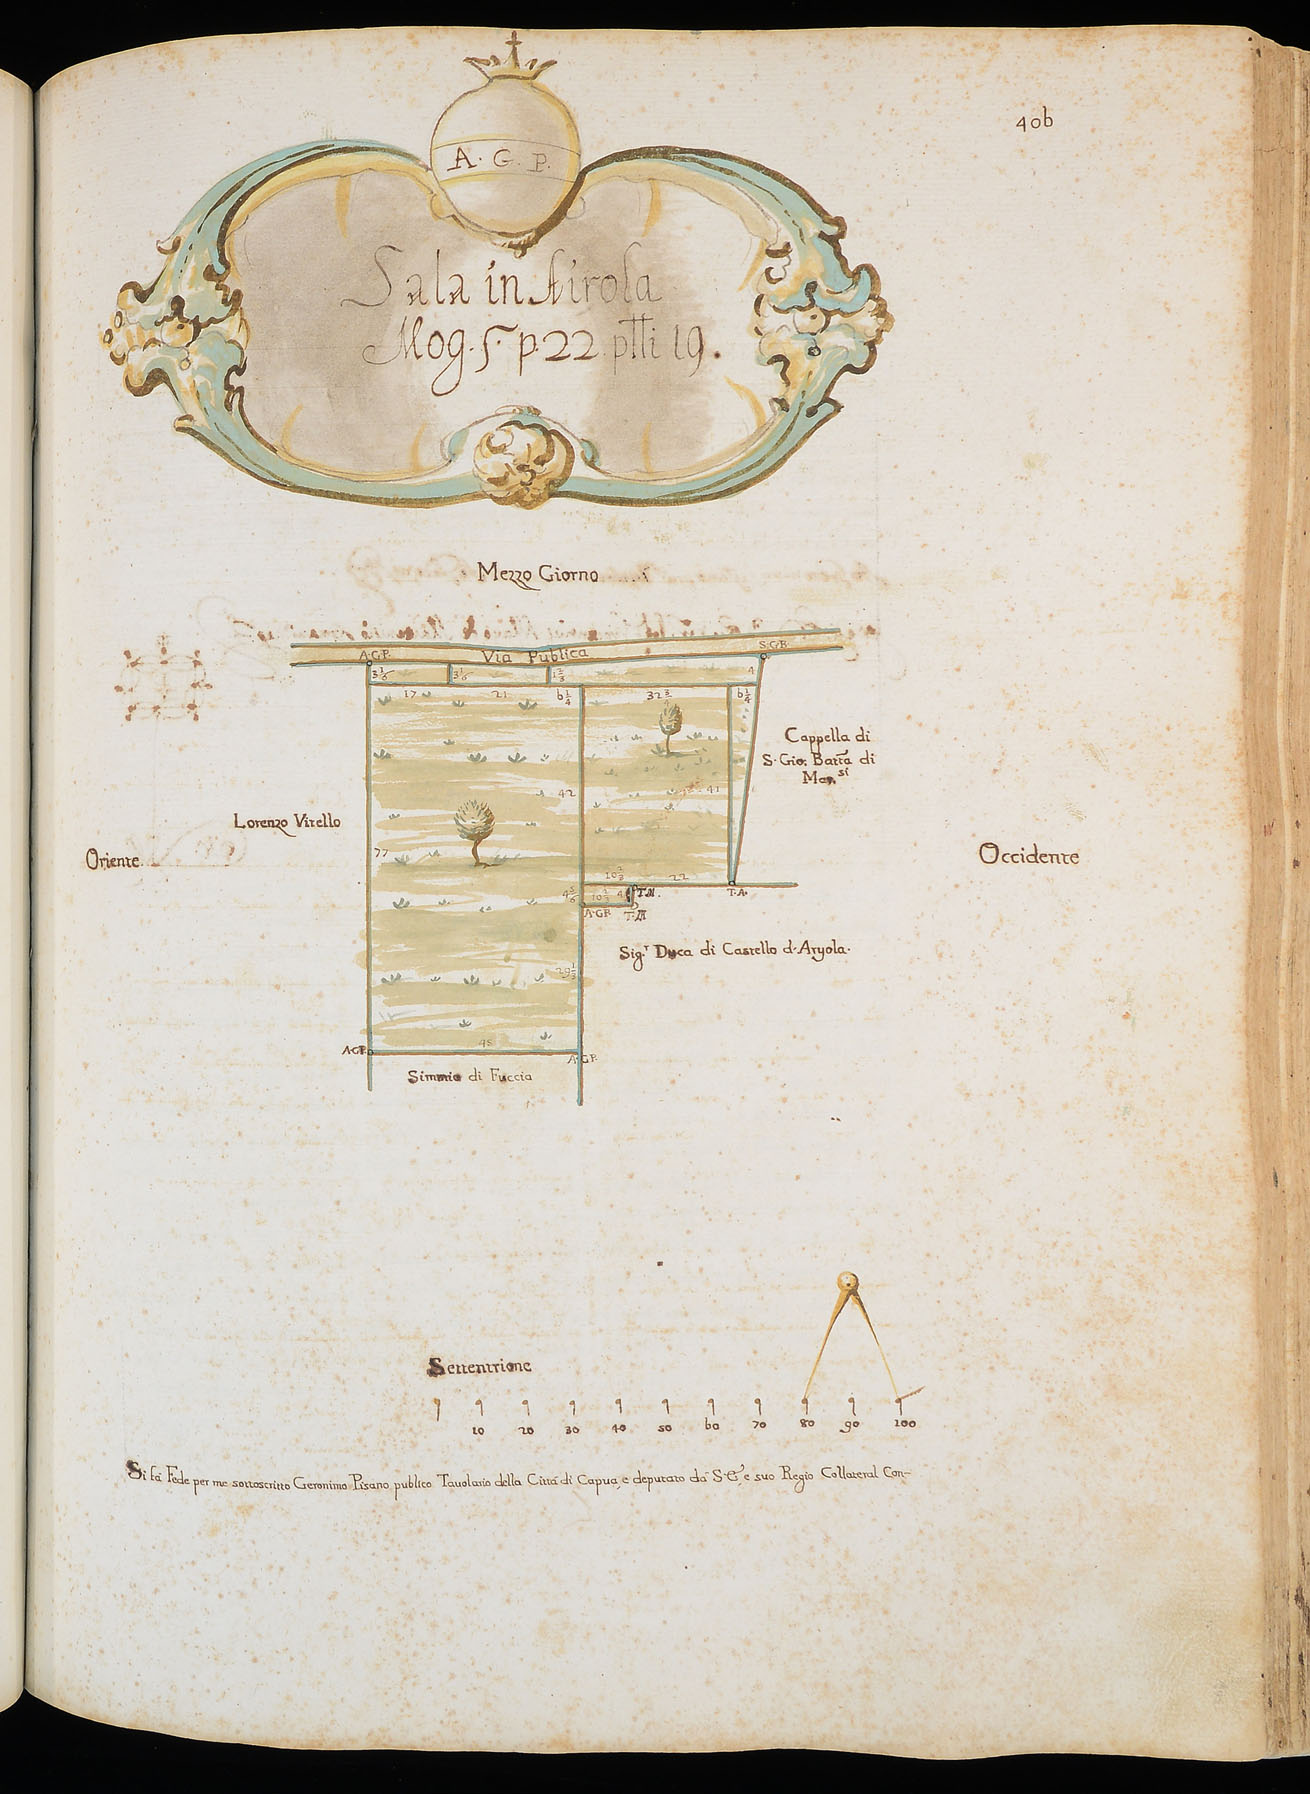 40b
A. G. P.
Sala in Airola
Mog. 5. p. 22 ptti 19.
Mezzo Giorno
A.G.P.
Via Publica
S.G.B.
3 1/6
3 1/6
1 2/3
4
17
21
6 1/4
32 3/4
6 1/4
Cappella di
S. Gio: Batta di
Mar.si
42
41
Lorenzo Vitello
Oriente
77
Occidente
10 2/3
22
4 5/6
10 2/3
4
T.M.
T.A.
A.G.P.
T.M
Sig.r Duca di Castello d'Aryola.
29 1/3
45
A.G.P.
A.G.P.
Simmio di Fuccia
Settentrione
10 20 30 40 50 60 70 80 90 100
Si fà Fede per me sottoscritto Geronimo Pisano publico Tavolario della Città di Capua, e deputato da S. E. e suo Regio Collateral Con-